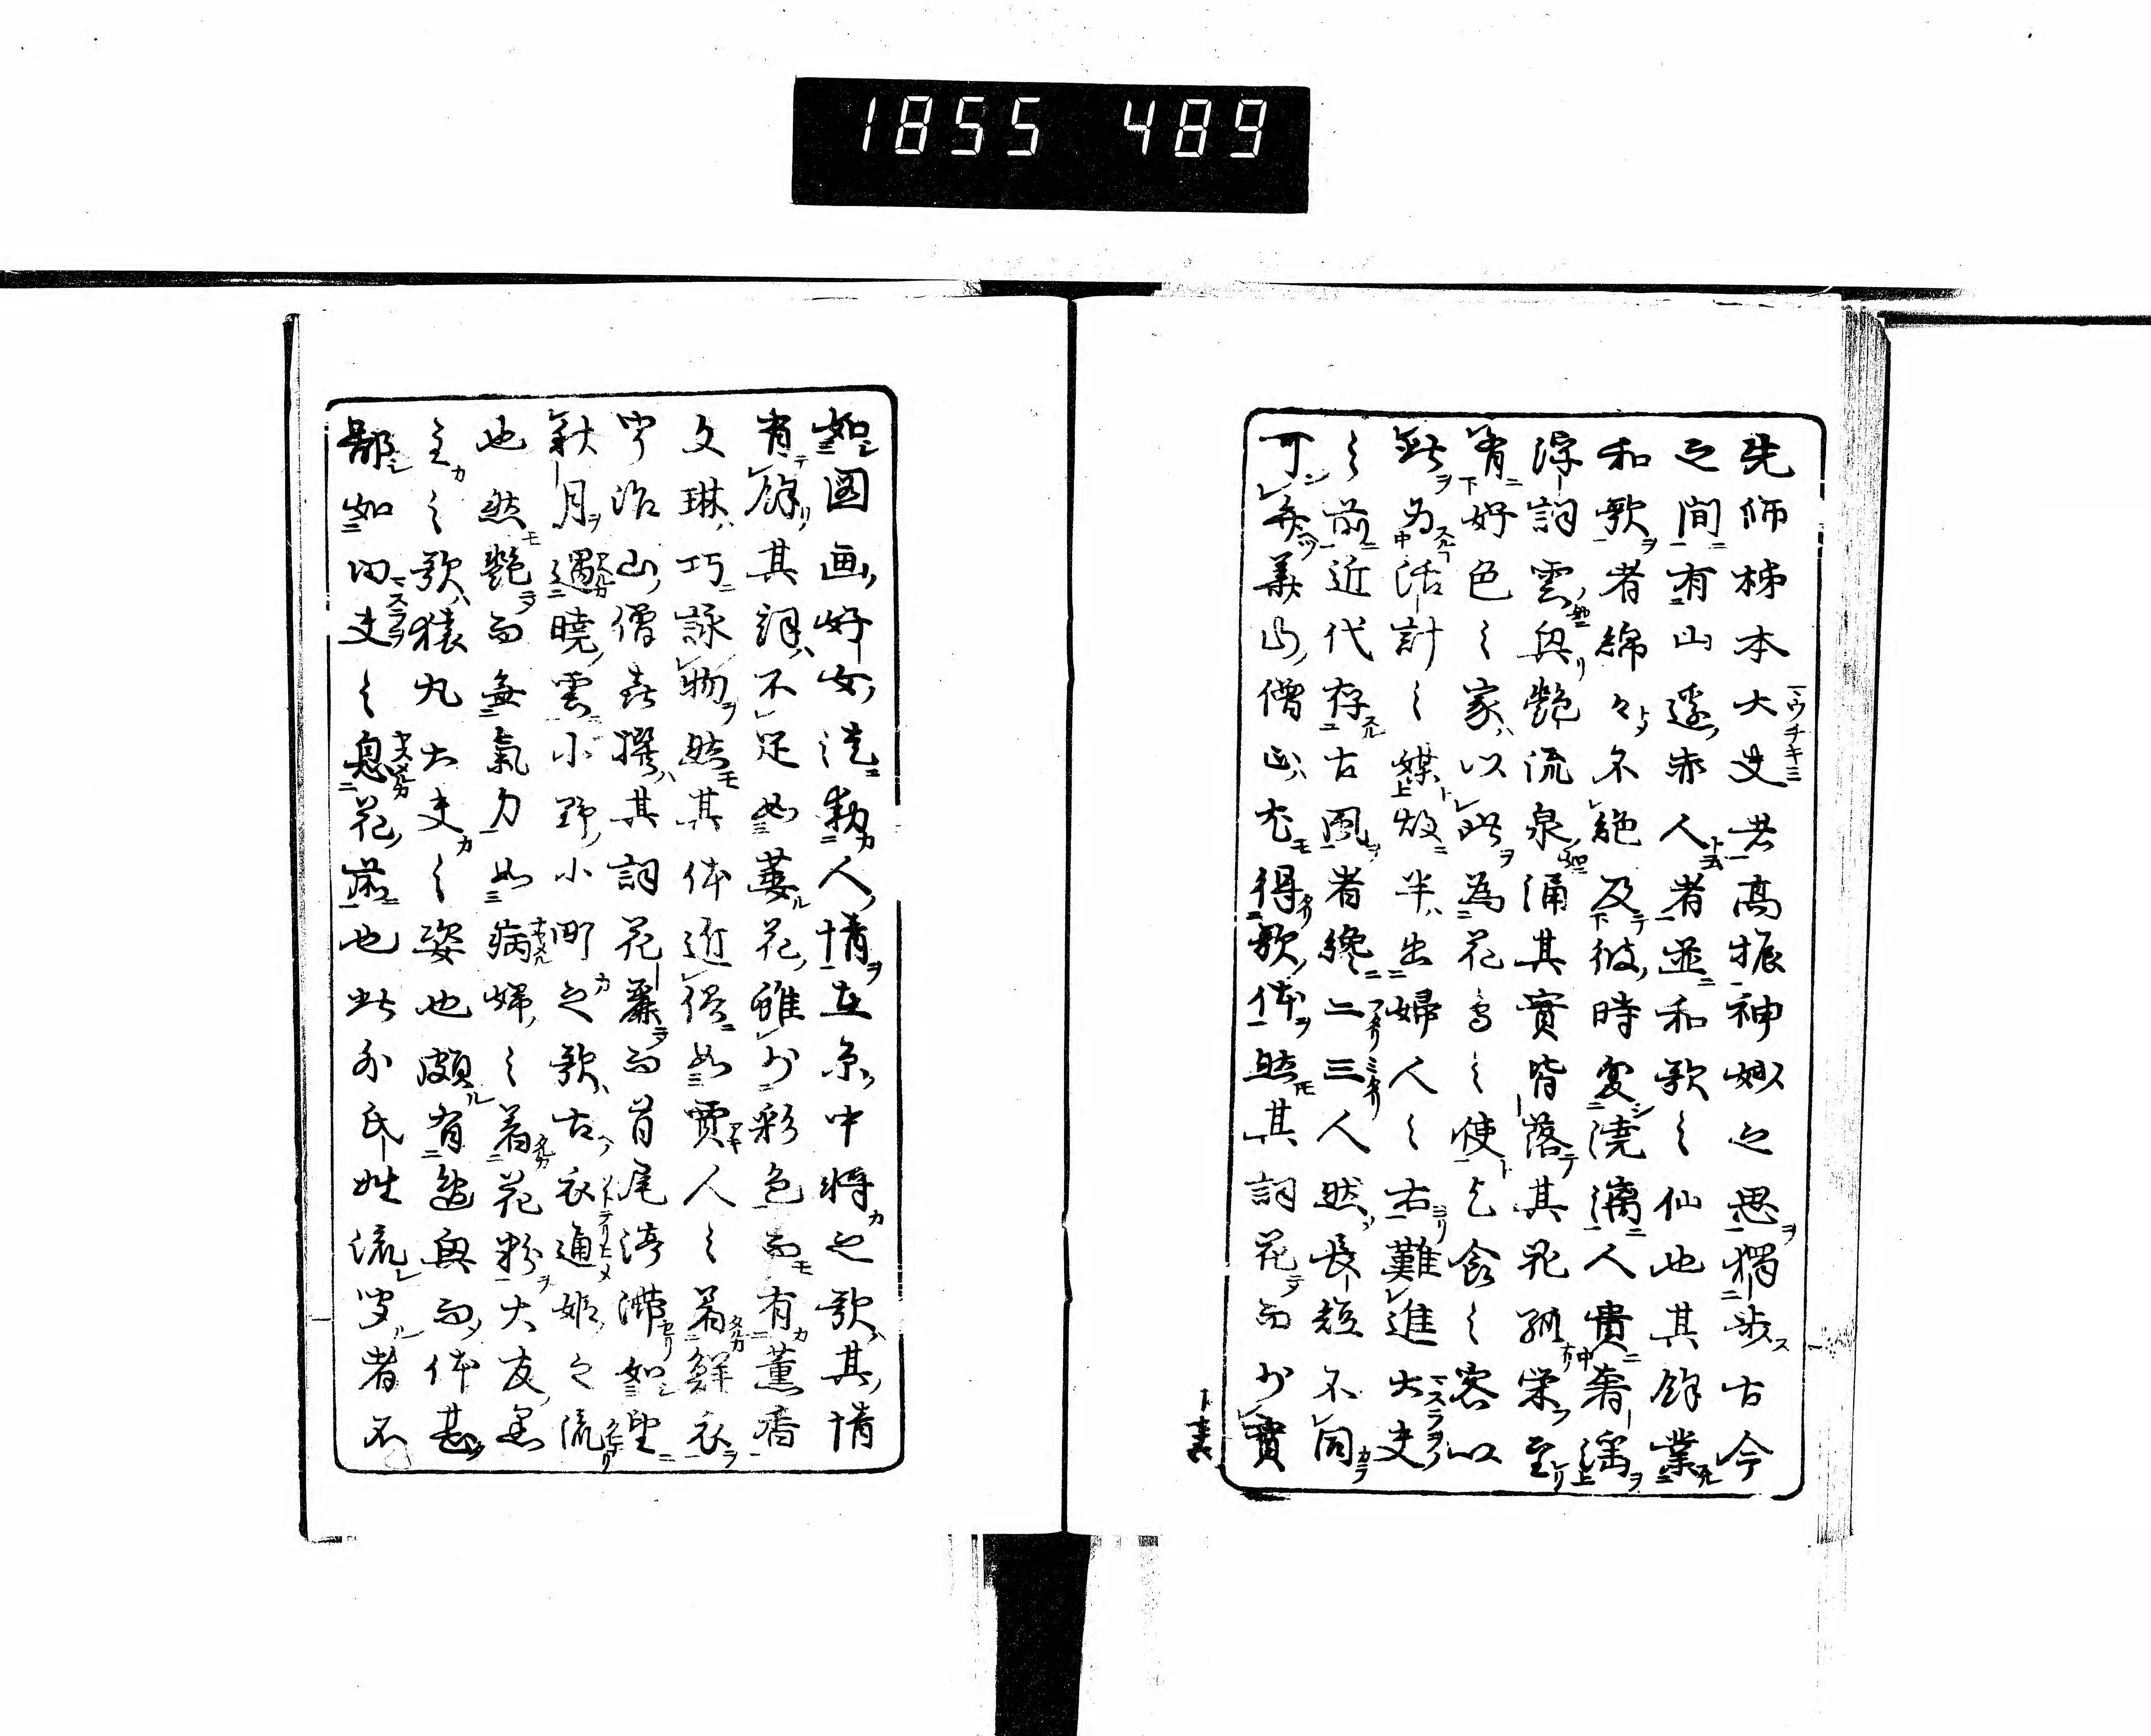 1855 489
先師柿本大夫者高振神妙之思獨步古今
之間有山邊赤人者並和歌之仙也其餘業
和歌者綿々不絶及彼時変澆漓人貴奢淫
浮詞雲興艶流泉涌其實皆落其花孤栄至
有好色之家以此為花鳥之使乞食之客以
此為活計之媒故半出婦人之右難進大夫
之前近代存古風者纔二三人然長短不同
可弁華山僧正尤得歌体然其詞花而少實
如図画好女徒動人情在原中将之歌其情
有餘其詞不足如萎花雖少彩色而有薫香
文琳巧詠物然其体近俗如賈人之着鮮衣
宇治山僧喜撰其詞花麗而首尾渟滞如望
秋月遇曉雲小野小町之歌古衣通姫之流
也然艶而無氣力如病婦之着花粉大友黒
主之歌猿丸大夫之姿也頗有逸興而体甚
鄙如田夫之息花前也此外氏姓流聞者不